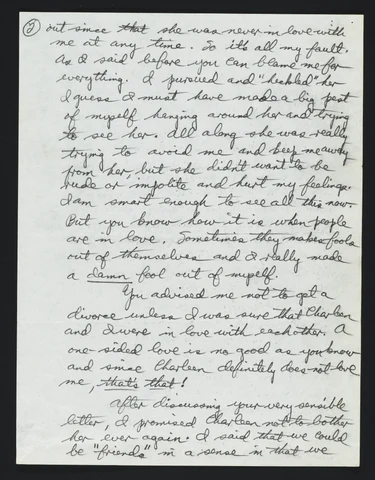 ② out since that she was never in love with
me at any time. So it's all my fault.
As I said before you can blame me for
everything. I pursued and "heckled" her
I guess I must have made a big pest
of myself hanging around her and trying
to see her. All along she was really
trying to avoid me and keep me away
from her, but she didn't want to be
rude or impolite and hurt my feelings.
I am smart enough to see all this now.
But you know how it is when people
are in love. Sometimes they make fools
out of themselves and I really made
a damn fool out of myself.
You advised me not to get a
divorce unless I was sure that Charleen
and I were in love with each other. A
one-sided love is no good as you know
and since Charleen definitely does not love
me, that's that!
After discussing your very sensible
letter, I promised Charleen not to bother
her ever again. I said that we could
be "friends" in a sense in that we